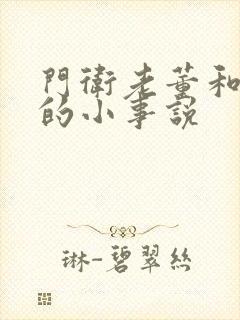 門衛老董和
的小事説
琳-碧翠絲